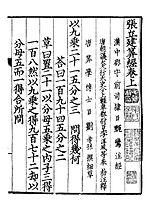 張丘建算經卷上
漢中郡守前司隸臣甄鸞注經
唐朝議大夫行太史令上輕車都尉臣李淳風等奉敕注釋
唐算學博士臣劉孝孫撰細草
以九乘二十一五分之三 問得幾何
荅曰一百九十四五分之二
草曰置二十一以分母五乘之内子三得
一百八然以九乘之得九百七十二却以
分母五而一得合所問